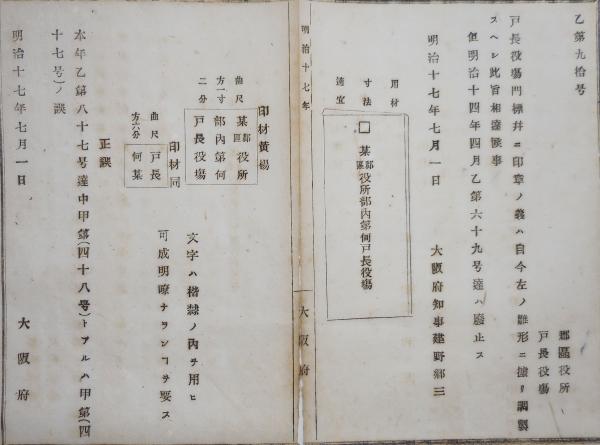 乙第九拾号
郡區役所
戸長役場
戸長役場門標幷ニ印章ノ義ハ自今左ノ雛形ニ據リ調製
スヘシ此旨相達候事
但明治十四年四月乙第六十九号達ハ廢止ス
明治十七年七月一日
大阪府知事建野郷三
用材
寸法
適宜
某郡區役所部内第何戸長役場
明治十七年
大阪府
印材黄楊
曲尺
方一寸
二分
某郡區役所
部内第何
戸長役場
印材同
曲尺
方六分
戸長
何某
文字ハ楷隷ノ内ヲ用ヒ
可成明瞭ナランコヲ要ス
正誤
本年乙第八十七号達中甲第(四十八号)トアルハ甲第(四
十七号)ノ誤
明治十七年七月一日
大阪府